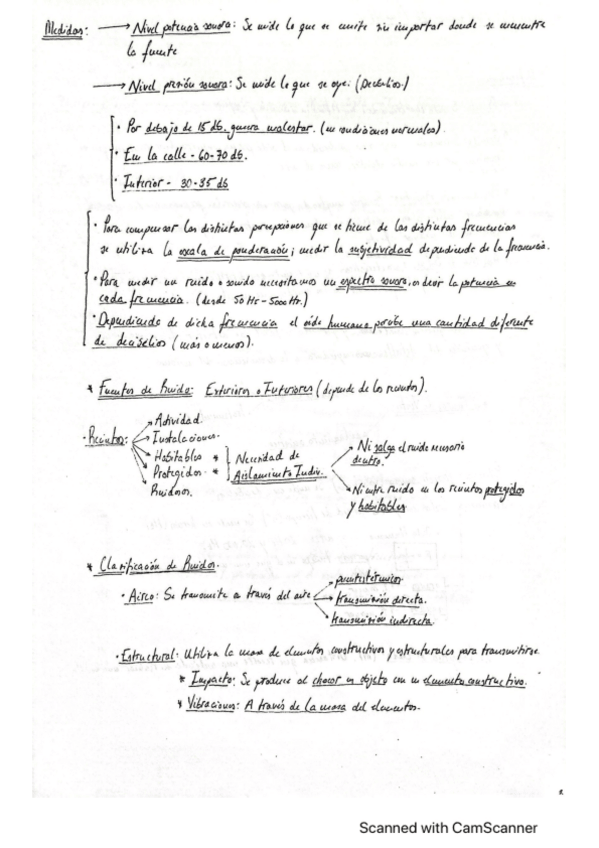 Medidas: → Nivel potencia sonora: Se mide lo que se emite sin importar donde se encuentra
la fuente
→ Nivel presión sonora: Se mide lo que se oye. (Decibelios)
· Por debajo de 15 db, genera malestar. (en condiciones normales).
· En la calle - 60-70 db.
· Interior - 30-35 db
· Para compensar las distintas percepciones que se tiene de las distintas frecuencias
se utiliza la escala de ponderación; medir la subjetividad dependiendo de la frecuencia.
· Para medir un ruido o sonido necesitamos un espectro sonoro, es decir la potencia en
cada frecuencia. (desde 50 Hz - 5000 Hz.)
· Dependiendo de dicha frecuencia el oído humano percibe una cantidad diferente
de decibelios (más o menos).
* Fuentes de Ruido: Exteriores o Interiores (depende de los recintos).
· Recintos:
Actividad.
Instalaciones.
Habitables *
Protegidos. *
Ruidosos.
Necesidad de
Aislamiento Indiv.
Ni salga el ruido necesario
dentro.
Ni entre ruido en los recintos protegidos
y habitables
* Clasificación de Ruidos.
· Aéreo: Se transmite a través del aire
puentes térmicos.
transmisión directa.
transmisión indirecta.
· Estructural: Utiliza la masa de elementos constructivos y estructurales para transmitirse.
* Impacto: Se produce al chocar un objeto con un elemento constructivo.
* Vibraciones: A través de la masa del elementos.
Scanned with CamScanner